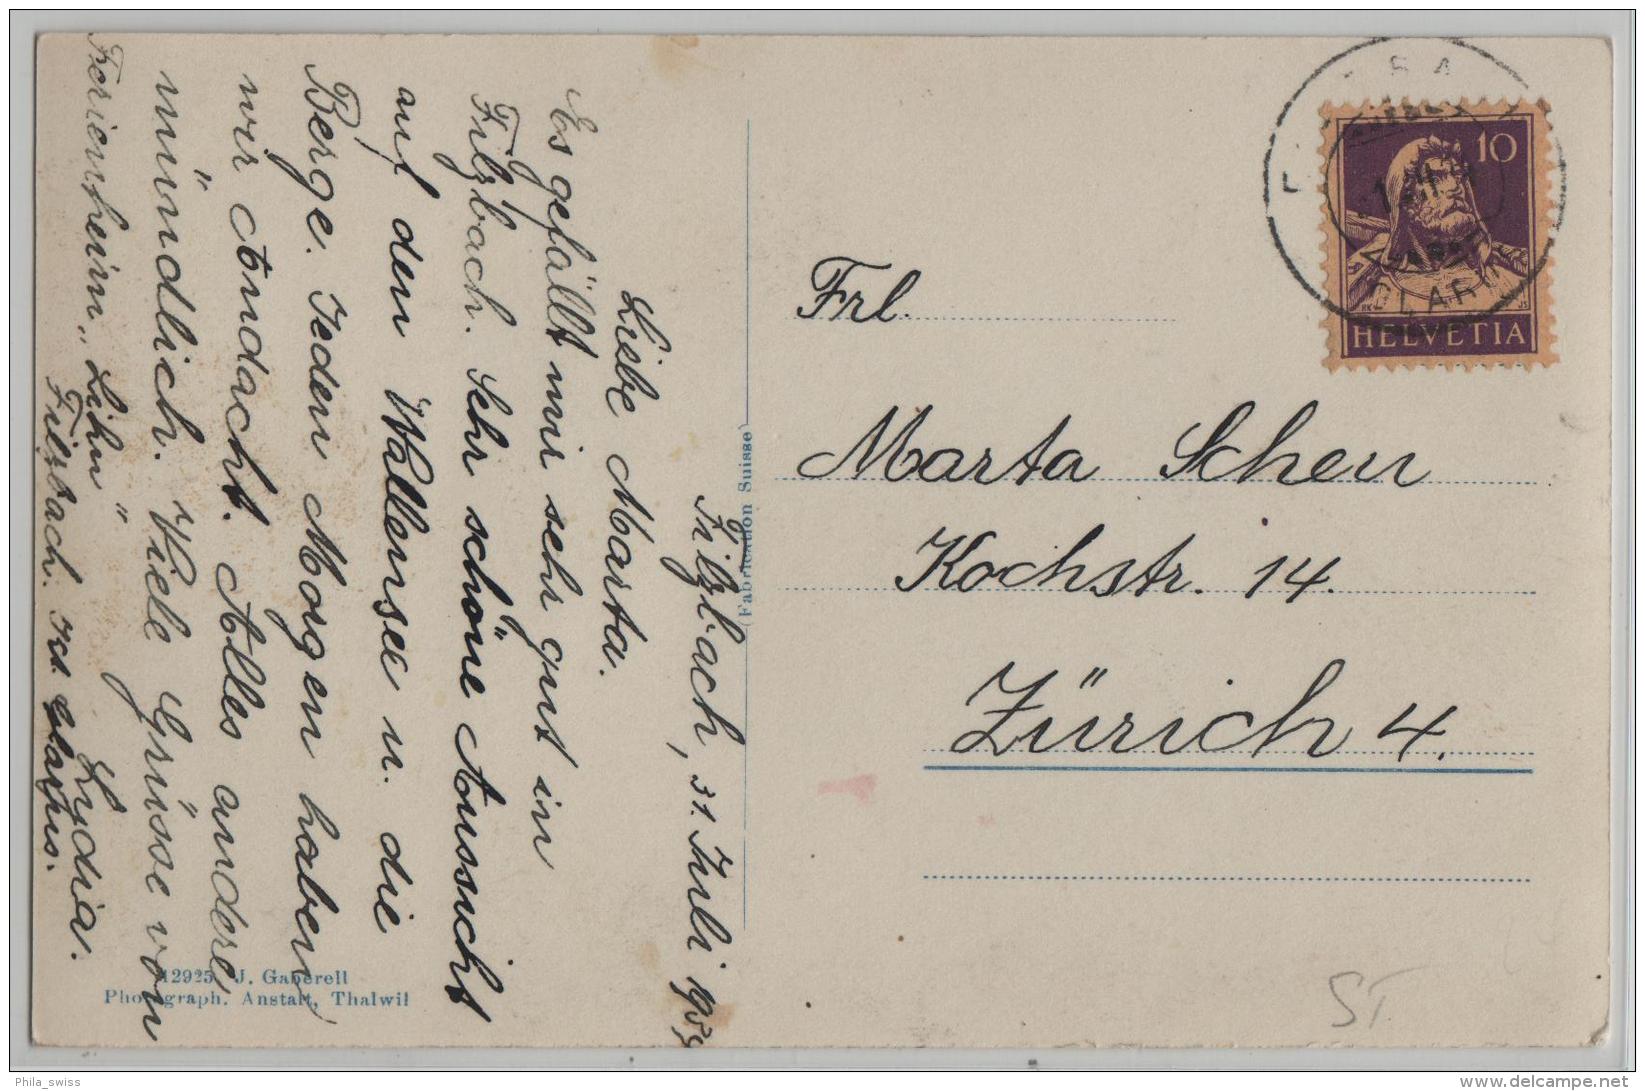 Filzbach, 31. Juli 19
Liebe Marta.
Es gefällt mir sehr gut in
Filzbach. Sehr schöne Aussicht
auf den Wallensee u. die
Berge. Jeden Morgen haben
wir Andacht. Alles andere
mündlich. Viele Grüsse von
Lydia.
Ferienheim „Lihn"
Filzbach. Kt. Glarus.
12925 J. Gaberell
Photograph. Anstalt, Thalwil
(Fabrication Suisse)
Frl.
Marta Scheu
Kochstr. 14.
Zürich 4.
10
HELVETIA
ST
Phila_swiss
www.delcampe.net